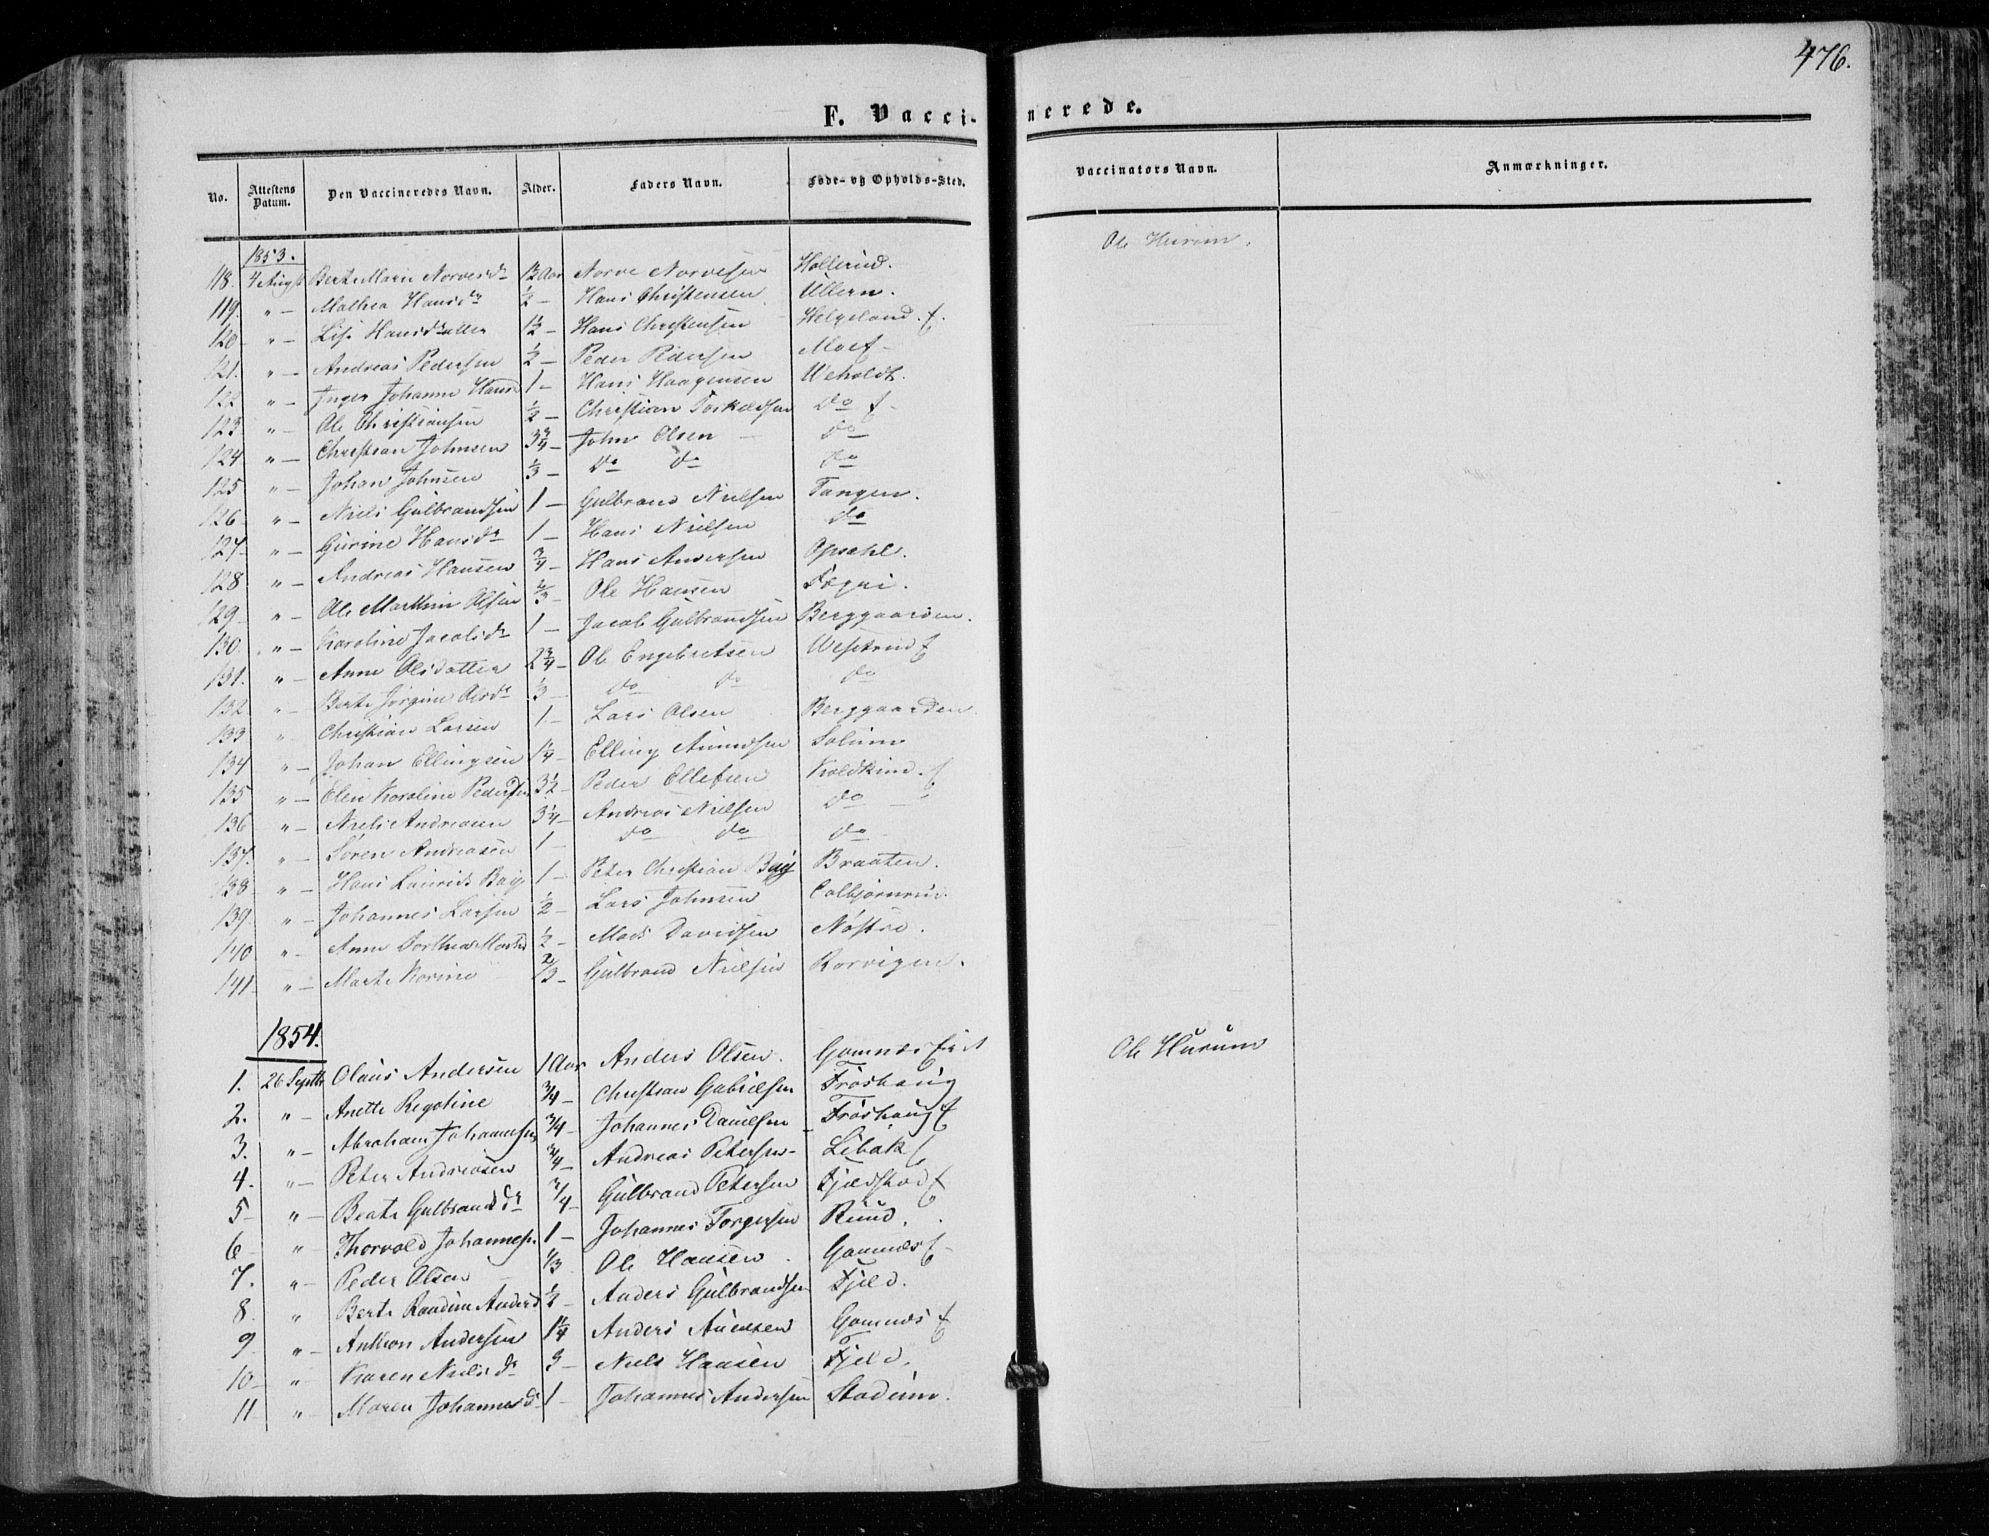 476.
F. Vaccinerede.
No. Attestens Datum. Den Vaccineredes Navn. Alder. Faders Navn. Føde- og Opholds-Sted. Vaccinators Navn. Anmærkninger.
1853. Ole Hurum.
118. 4 August Berte Marie Norvesdr Aar Norve Norvesen Hollerud.
119. " — Mathea Hansdr 1/2 — Hans Christensen Ullern.
120 " — Lise Hansdatter 1 1/2 — Hans Christensen Helgeland. f.
121. " — Andreas Pedersen 1/2 — Peder Pedersen Moe f
122 " — Inger Johanne Hansd 1 — Hans Haagensen Weholdt.
123 " — Ole Christiansen 1/2 — Christian Torkeldsen do f
124 " — Christian Johnsen 3 3/4 — John Olsen — do
125 " — Johan Johnsen 1/3 — do do do
126 " — Niels Gulbrandsen 1 — Gulbrand Nielsen Tangen.
127 " — Gurine Hansdr 1 — Hans Nielsen do
128 " — Andreas Hansen 3/4 — Hans Andersen Opsahl.
129 " — Ole Marthin Olsen 2/3 — Ole Hansen Fegri.
130. " — Karoline Jacobsdr 1 — Jacob Gulbrandsen Berggaarden.
131. " — Anne Olsdatter 2 3/4 — Ole Engebretsen Westrud f
132 " — Berte Jørgine Olsdr 1/3 — do do do
133 " Christian Larsen 1 — Lars Olsen Berggaarden
134 " — Johan Ellingsen 1 1/4 — Elling Amundsen Solum
135 " — Elen Karoline Pedersen 3 1/2 — Peder Ellefsen Koldkin. f
136 " — Niels Andreasen 3 1/4 — Andreas Nielsen do
137. " — Søren Andreasen 1 — do do do
138 " — Hans Laurids Bay 1 — Peter Christian Bay Braaten.
139. " — Johannes Larsen 1/2 — Lars Johnsen Colbjørnrud.
140 " — Anne Dorthea 1/2 — Mads Davidsen Nøstre.
141 " — Marte Karine 2/3 — Gulbrand Nielsen Rørvigen.
1854. Ole Hurum
1. 26 Septbr Olaus Andersen 1 Aar Anders Olsen. Gomnes
2. " — Anette Regoline 3/4 — Christian Gabrielsen Frøshaug
3. " — Abraham Johannesen 3/4 — Johannes Danielsen Frøshaug f
4. " — Peter Andreasen 3/4 — Andreas Petersen — Libak f
5 " — Beate Gulbrandsdr 3/4 — Gulbrand Petersen Fjeldstad f
6 " — Thorvald Johannesen 1 — Johannes Torgersen Ruud.
7. " — Peder Olsen 1/3 Ole Hansen Gomnes f
8. " Berte Randine Andersd 1/2 — Anders Gulbrandsen Fjeld.
9 " — Anthon Andersen 1 1/4 — Anders Gomnes f
10 " Karen Nielsdr 3 — Niels Hansen Fjeld.
11 " — Maren Johannesdr 1 — Johannes Andersen Stadum.